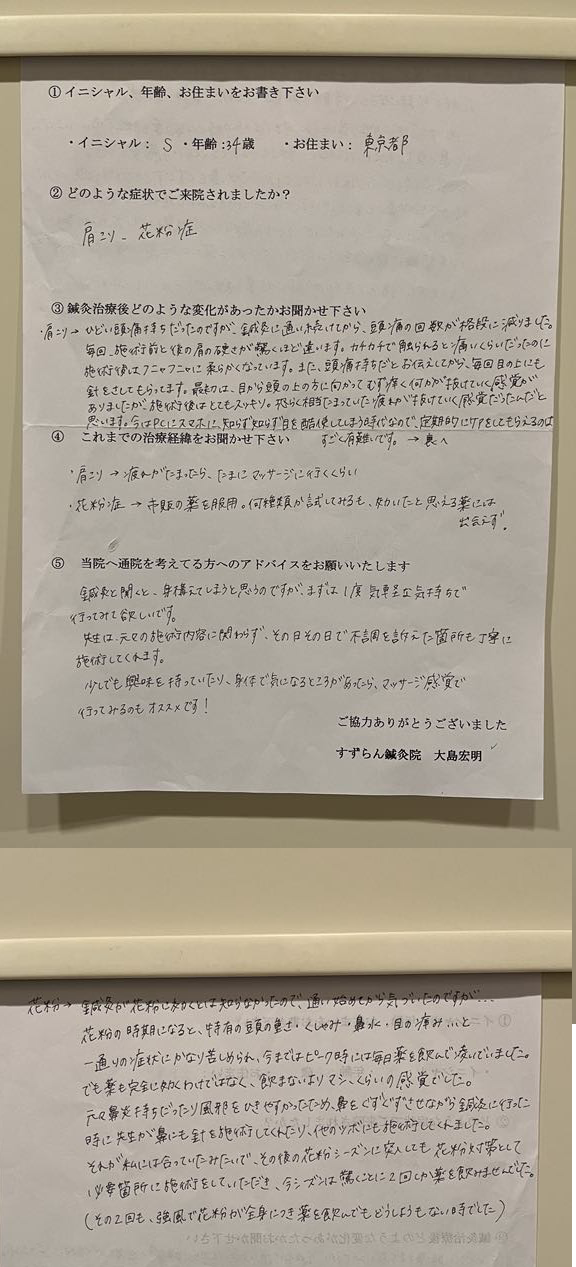 ① イニシャル、年齢、お住まいをお書き下さい
・イニシャル： S ・年齢：34歳 ・お住まい： 東京都
② どのような症状でご来院されましたか？
肩こり、花粉症
③ 鍼灸治療後どのような変化があったかお聞かせ下さい
・肩こり→ ひどい頭痛持ちだったのですが、鍼灸に通い続けてから、頭痛の回数が格段に減りました。
毎回、施術前と後の肩の硬さが驚くほど違います。カチカチで触られると痛いくらいだったのに
施術後はフニャフニャに柔らかくなっています。また、頭痛持ちだとお伝えしてから、毎回目の上にも
針をさしてもらってます。最初は、目から頭の上の方に向かってむず痒く何かが抜けていく感覚が
ありましたが施術後はとてもスッキリ。恐らく相当たまっていた疲れが抜けていく感覚だったんだと
思います。今はPCにスマホに、知らず知らず目を酷使してしまう時代なので、定期的にケアをしてもらえるのは
④ これまでの治療経緯をお聞かせ下さい すごく有難いです。 → 裏へ
・肩こり → 疲れがたまったら、たまにマッサージに行くくらい
・花粉症 → 市販の薬を服用。何種類か試してみるも、効いたと思える薬には
出会えず。
⑤ 当院へ通院を考えてる方へのアドバイスをお願いいたします
鍼灸と聞くと、身構えてしまうと思うのですが、まずは1度気軽な気持ちで
行ってみて欲しいです。
先生は、元々の施術内容に関わらず、その日その日で不調を訴えた箇所も丁寧に
施術してくれます。
少しでも興味を持っていたり、身体で気になるところがあったら、マッサージ感覚で
行ってみるのもオススメです！
ご協力ありがとうございました
すずらん鍼灸院 大島宏明
花粉→ 鍼灸が花粉に効くとは知らなかったので、通い始めてから気づいたのですが...
花粉の時期になると、特有の頭の重さ・くしゃみ・鼻水・目の痛み...と
一通りの症状にかなり苦しめられ、今まではピーク時には毎日薬を飲んで凌いでいました。
でも薬も完全に効くわけではなく、飲まないよりマシ、くらいの感覚でした。
元々鼻炎持ちだったり風邪をひきやすかったため、鼻をぐずぐずさせながら鍼灸に行った
時に先生が鼻にも針を施術してくれたり、他のツボにも施術してくれました。
それが私には合っていたみたいで、その後の花粉シーズンに突入しても花粉対策として
必要箇所に施術をしていただき、今シーズンは驚くことに2回しか薬を飲みませんでした。
(その2回も、強風で花粉が全身につき薬を飲んでもどうしようもない時でした)